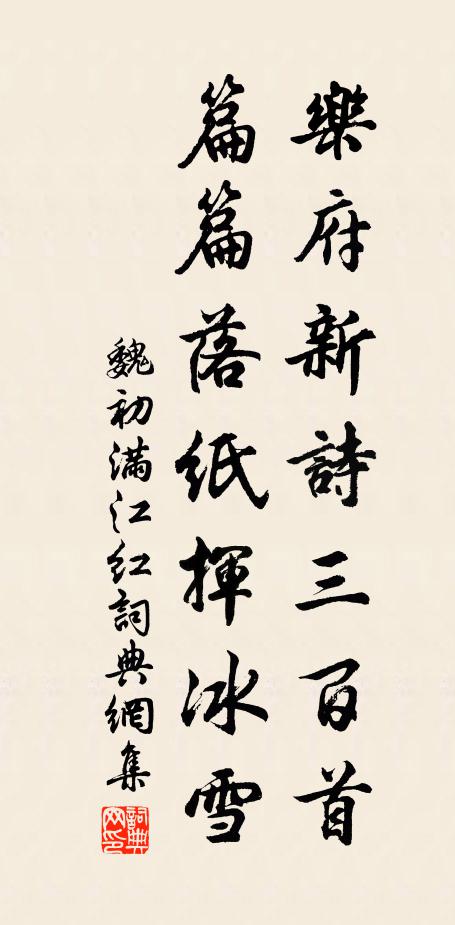 樂府新詩三百首
篇篇落紙揮冰雪
魏初满江红詞典網集
詞典網印